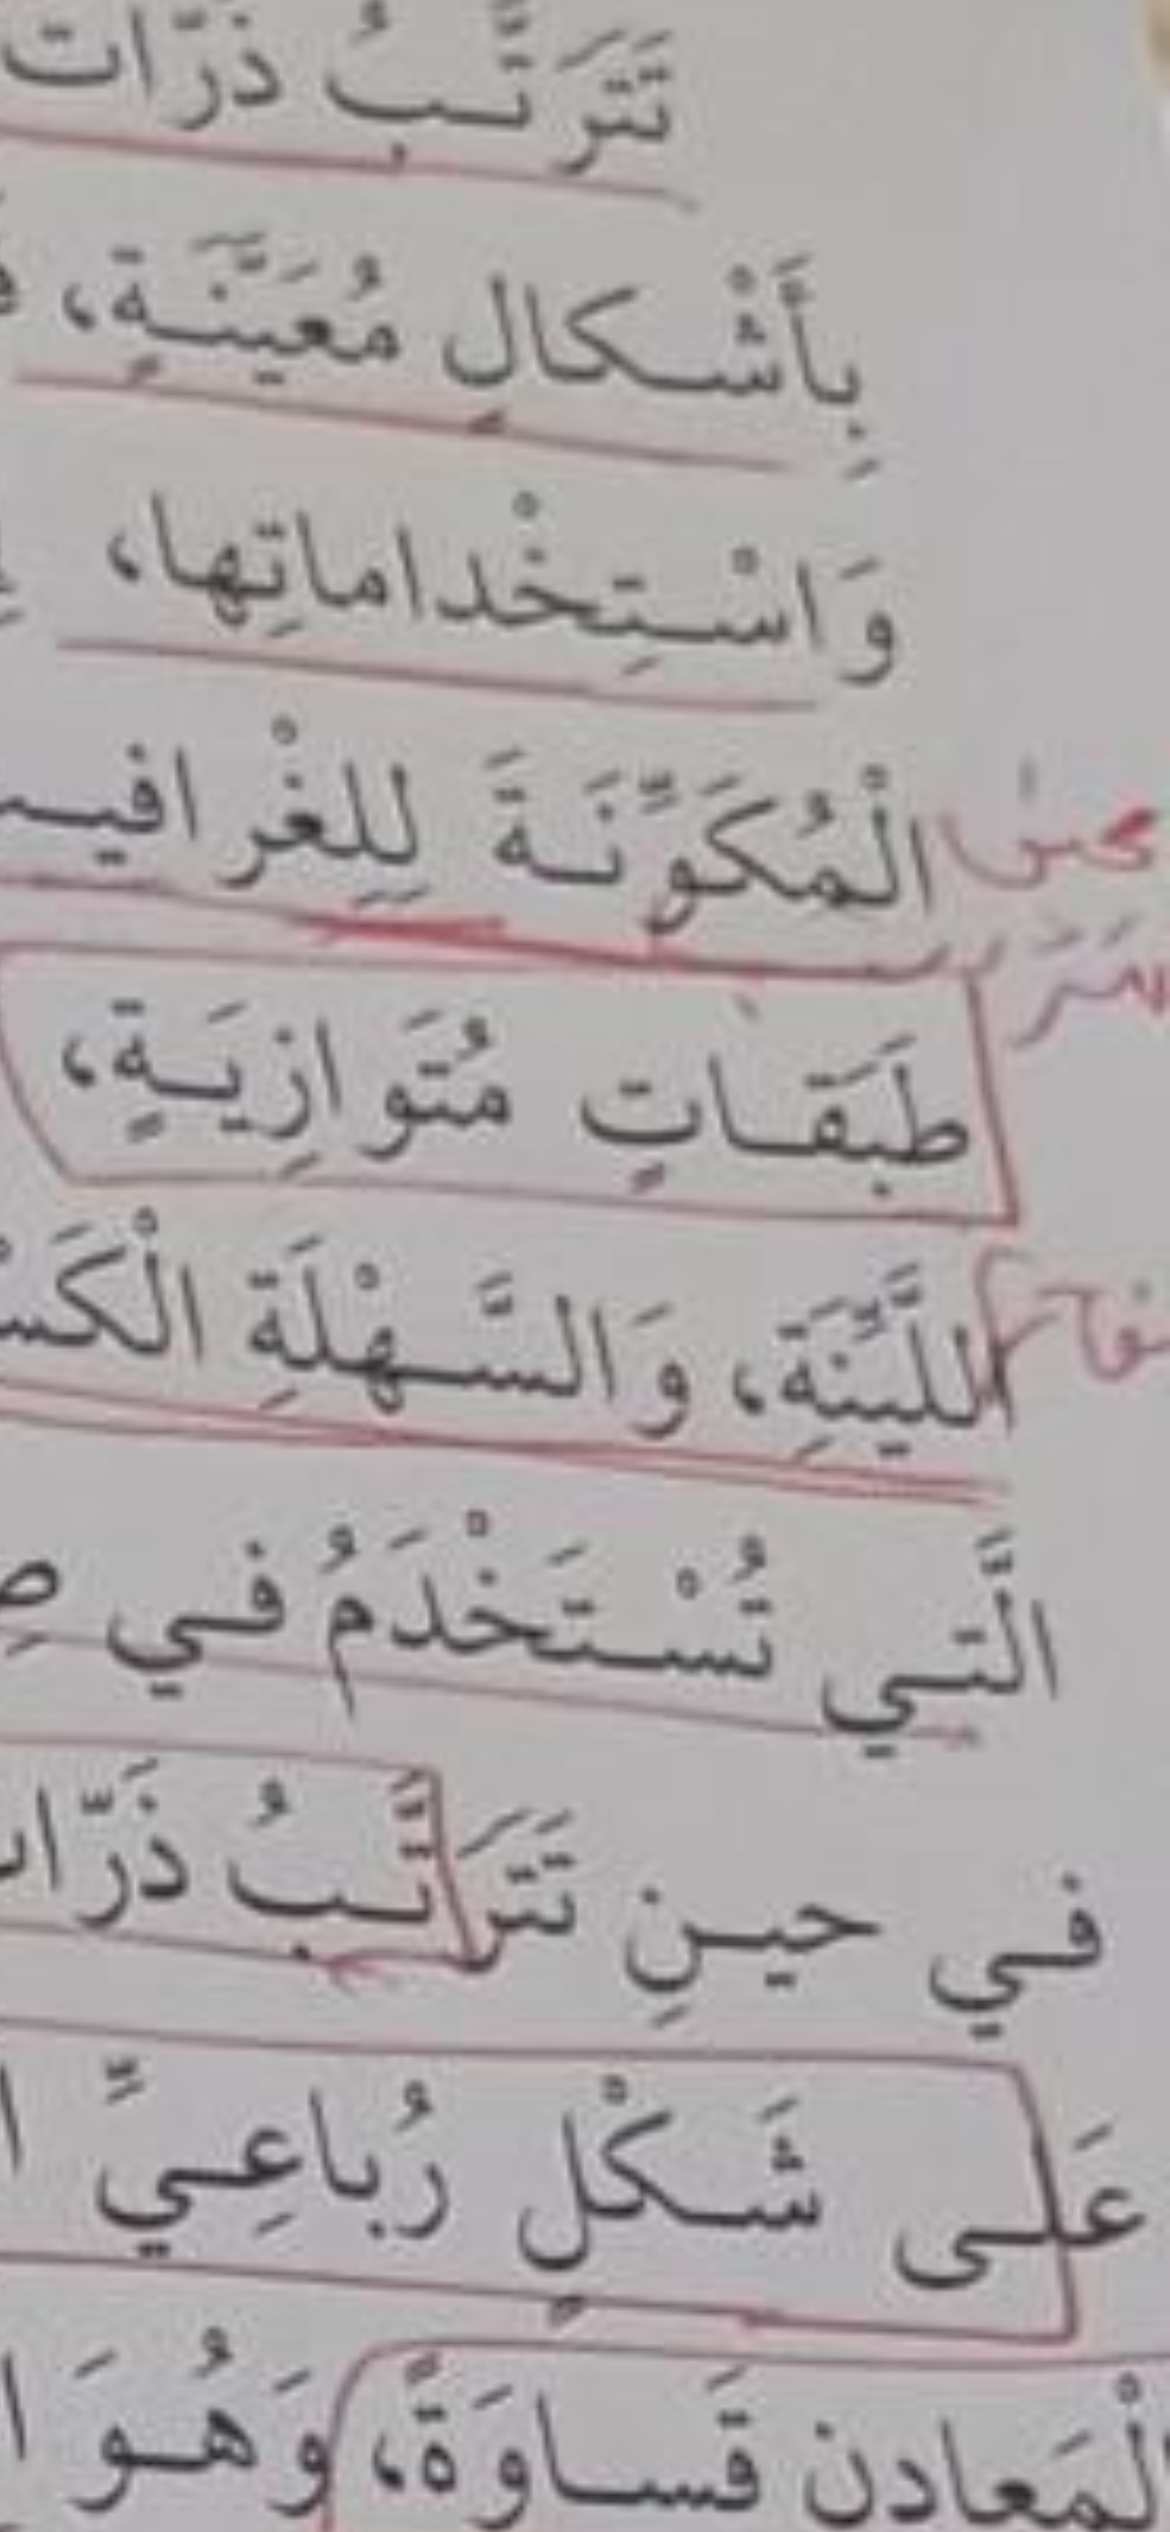 تَتَرَتَّبُ ذَرّات
بِأَشْكالٍ مُعَيَّنَةٍ،
وَاسْتِخْداماتِها،
الْمُكَوِّنَةَ لِلِغْرافيـ
طَبَقاتٍ مُتَوازِيَةٍ،
اللَّيِّنَةِ، وَالسَّهْلَةِ الْكَسْـ
الَّتي تُسْتَخْدَمُ في صِـ
في حينِ تَتَرَتَّبُ ذَرّاتـ
عَلى شَكْلٍ رُباعِيِّ ا
الْمَعادن قَساوَةً، وَهُوَ ا